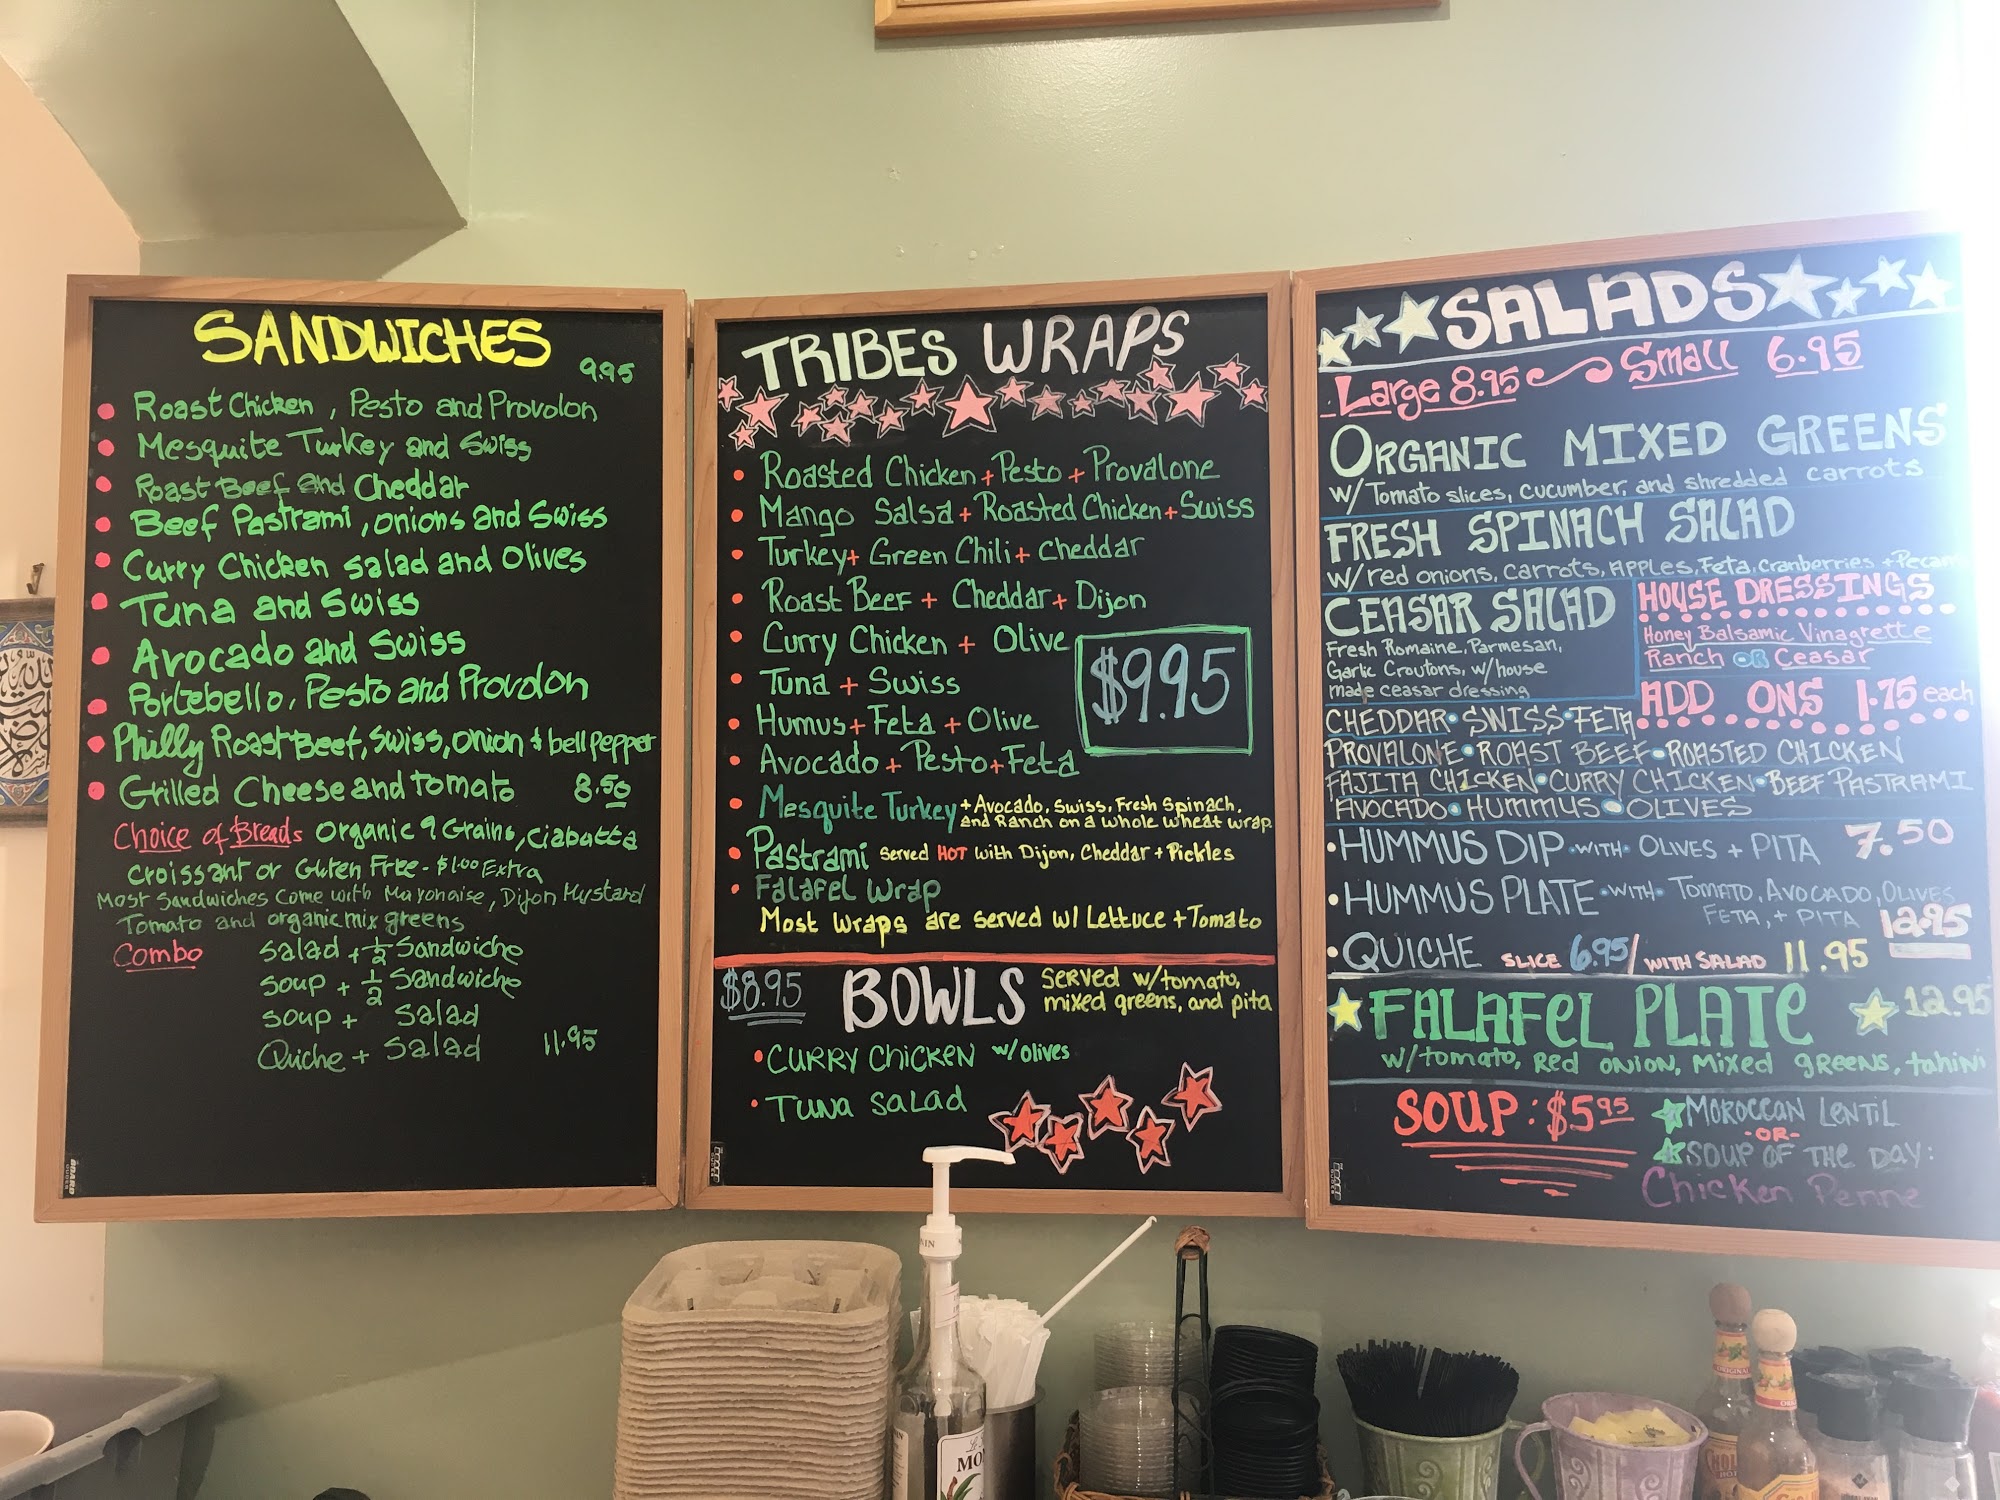 SANDWICHES
9.95
Roast Chicken, Pesto and Provolon
Mesquite Turkey and Swiss
Roast Beef and Cheddar
Beef Pastrami, onions and Swiss
Curry Chicken salad and Olives
Tuna and Swiss
Avocado and Swiss
Portebello, Pesto and Provolon
Philly Roast Beef, Swiss, onion & bell pepper
Grilled Cheese and tomato 8.50
Choice of Breads Organic 9 Grains, Ciabatta
Croissant or Gluten Free - $1.00 Extra
Most Sandwiches Come with Mayonaise, Dijon Mustard
Tomato and organic mix greens
Combo Salad + 1/2 Sandwiche
Soup + 1/2 Sandwiche
Soup + Salad
Quiche + Salad 11.95
TRIBES WRAPS
Roasted Chicken + Pesto + Provalone
Mango Salsa + Roasted Chicken + Swiss
Turkey + Green Chili + Cheddar
Roast Beef + Cheddar + Dijon
Curry Chicken + Olive
Tuna + Swiss
Humus + Feta + Olive
Avocado + Pesto + Feta
$9.95
Mesquite Turkey + Avocado, Swiss, Fresh Spinach,
and Ranch on a whole wheat wrap.
Pastrami Served HOT with Dijon, Cheddar + Pickles
Falafel Wrap
Most wraps are served w/ Lettuce + Tomato
$8.95 BOWLS Served w/tomato,
mixed greens, and pita
CURRY CHICKEN w/olives
TUNA SALAD
SALADS
Large 8.95 Small 6.95
ORGANIC MIXED GREENS
w/ Tomato slices, cucumber, and shredded carrots
FRESH SPINACH SALAD
w/ red onions, carrots, apples, Feta, cranberries + Pecans
CEASAR SALAD
Fresh Romaine, Parmesan,
Garlic Croutons, w/house
made ceasar dressing
HOUSE DRESSINGS
Honey Balsamic Vinagrette
Ranch OR Ceasar
ADD ONS 1.75 each
CHEDDAR • SWISS • FETA
PROVALONE • ROAST BEEF • ROASTED CHICKEN
FAJITA CHICKEN • CURRY CHICKEN • BEEF PASTRAMI
AVOCADO • HUMMUS • OLIVES
• HUMMUS DIP • WITH • OLIVES + PITA 7.50
• HUMMUS PLATE • WITH • TOMATO, AVOCADO, OLIVES
FETA, + PITA 12.95
• QUICHE SLICE 6.95 / WITH SALAD 11.95
FALAFEL PLATE 12.95
w/tomato, Red onion, Mixed greens, tahini
SOUP: $5.95
MOROCCAN LENTIL
-OR-
SOUP OF THE DAY:
Chicken Penne